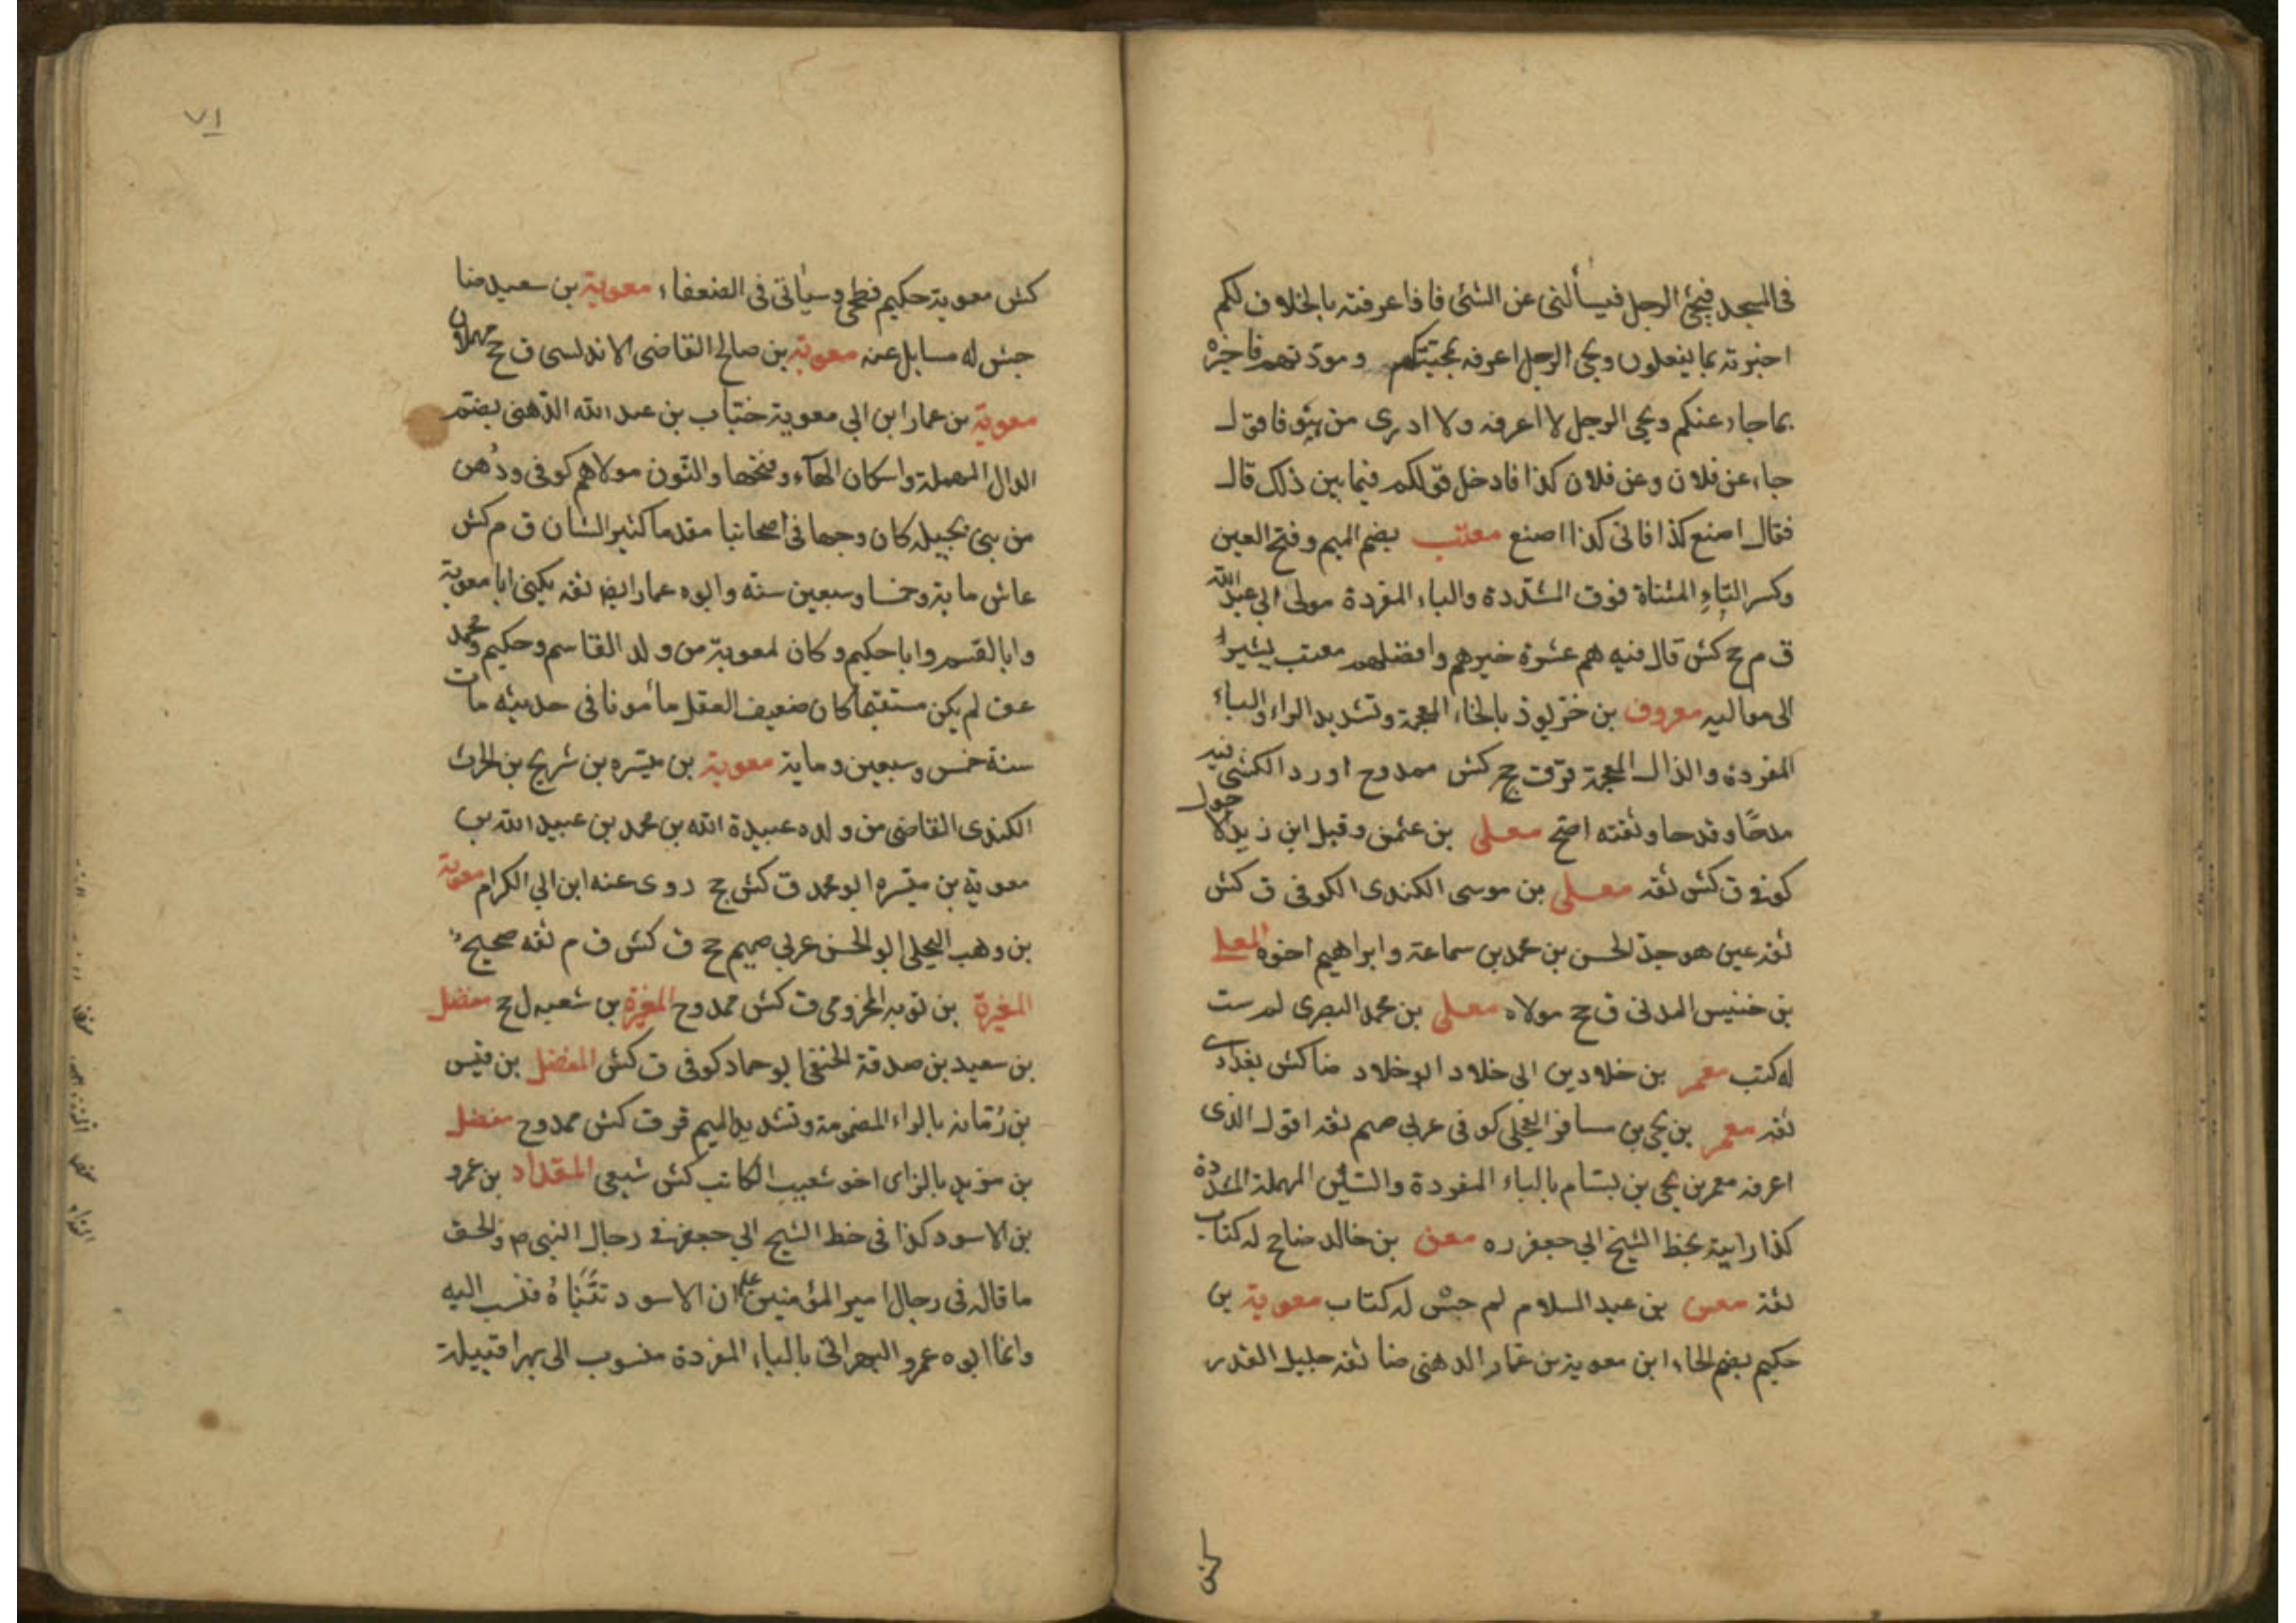 فى المسجد فيجئ الرجل فيسألنى عن الشئ فاذا عرفته بالخلاف لكم
اخبرته بما يفعلون ويجى الرجل اعرفه بمحبتكم ومودتهم فاخبره
بما جاء عنكم ويجى الرجل لا اعرفه ولا ادرى من هو فاقول
جاء عن فلان وعن فلان كذا فادخل قولكم فيما بين ذلك قال
فقال اصنع كذا فانى كذا اصنع معتب بضم الميم وفتح العين
وكسر التاء المثناة فوق المشددة والباء المفردة مولى ابى عبد الله
ق م جج كش قال فيه هم عشرة خيرهم وافضلهم معتب يشير
الى مواليه معروف بن خربوذ بالخاء المعجمة وتشديد الراء والباء
المفردة والذال المعجمة قر ق جج كش ممدوح اورد الكشى فيه
مدحا وقدحا وثقته اصح معلى بن عثمن وقيل ابن زيد الاحول
كوفى ق كش ثقه معلى بن موسى الكندى الكوفى ق كش
ثقه عين هو جد الحسن بن محمد بن سماعة وابراهيم اخوه المعلى
بن خنيس المدنى ق جج مولاه معلى بن محمد البصرى لم ست
له كتب معمر بن خلاد بن ابى خلاد ابو خلاد ضا كش بغدادى
ثقه معمر بن يحيى بن مسافر العجلى كوفى عربى صميم ثقه اقول الذى
اعرفه معمر بن يحيى بن بسام بالباء المفردة والسين المهملة المشددة
كذا رايته بخط الشيخ ابى جعفر ره معن بن خالد ضا جج له كتاب
ثقة معن بن عبد السلام لم جش له كتاب معوية بن
حكيم بضم الحاء ابن معوية بن عمار الدهنى ضا ثقه جليل القدر
كش
٧١
كش معوية حكيم فطحى وسيأتى فى الضعفاء معوية بن سعيد ضا
جش له مسايل عنه معوية بن صالح القاضى الاندلسى ق جج
معوية بن عمار ابن ابى معوية خباب بن عبد الله الدهنى بضم
الدال المهملة واسكان الهاء وفتحها والنون مولاهم كوفى ودهن
من بنى بجيله كان وجها فى اصحابنا مقدما كثير الشان ق م كش
عاش ماية وخمسا وسبعين سنه وابوه عمار ايضا ثقه يكنى ابا معوية
وابا القسم وابا حكيم وكان لمعوية من ولد القاسم وحكيم ومحمد
عق لم يكن مستقيما كان ضعيف العقل مأمونا فى حديثه مات
سنة خمس وسبعين وماية معوية بن ميسره بن شريح بن الحرث
الكندى القاضى من ولده عبيدة الله بن محمد بن عبيد الله بن
معوية بن ميسره ابو محمد ق كش جج روى عنه ابن ابى الكرام معوية
بن وهب البجلى ابو الحسن عربى صميم جج ق كش ق م ثقه صحيح
المغيرة بن توبه المخزومى ق كش ممدوح المغيرة بن شعبه ل جج مفضل
بن سعيد بن صدقة الحنفى ابو حماد كوفى ق كش المفضل بن قيس
بن رمانه بالراء المضمومة وتشديد الميم قر ق كش ممدوح مفضل
بن مزيد بالزاى اخو شعيب الكاتب كش شيعى المقداد بن عمرو
بن الاسود كذا فى خط الشيخ ابى جعفر فى رجال النبى ص والحق
ما قاله فى رجال امير المؤمنين ان الاسود تبناه فنسب اليه
وانما ابوه عمرو البهرانى بالباء المفردة منسوب الى بهرا قبيلة